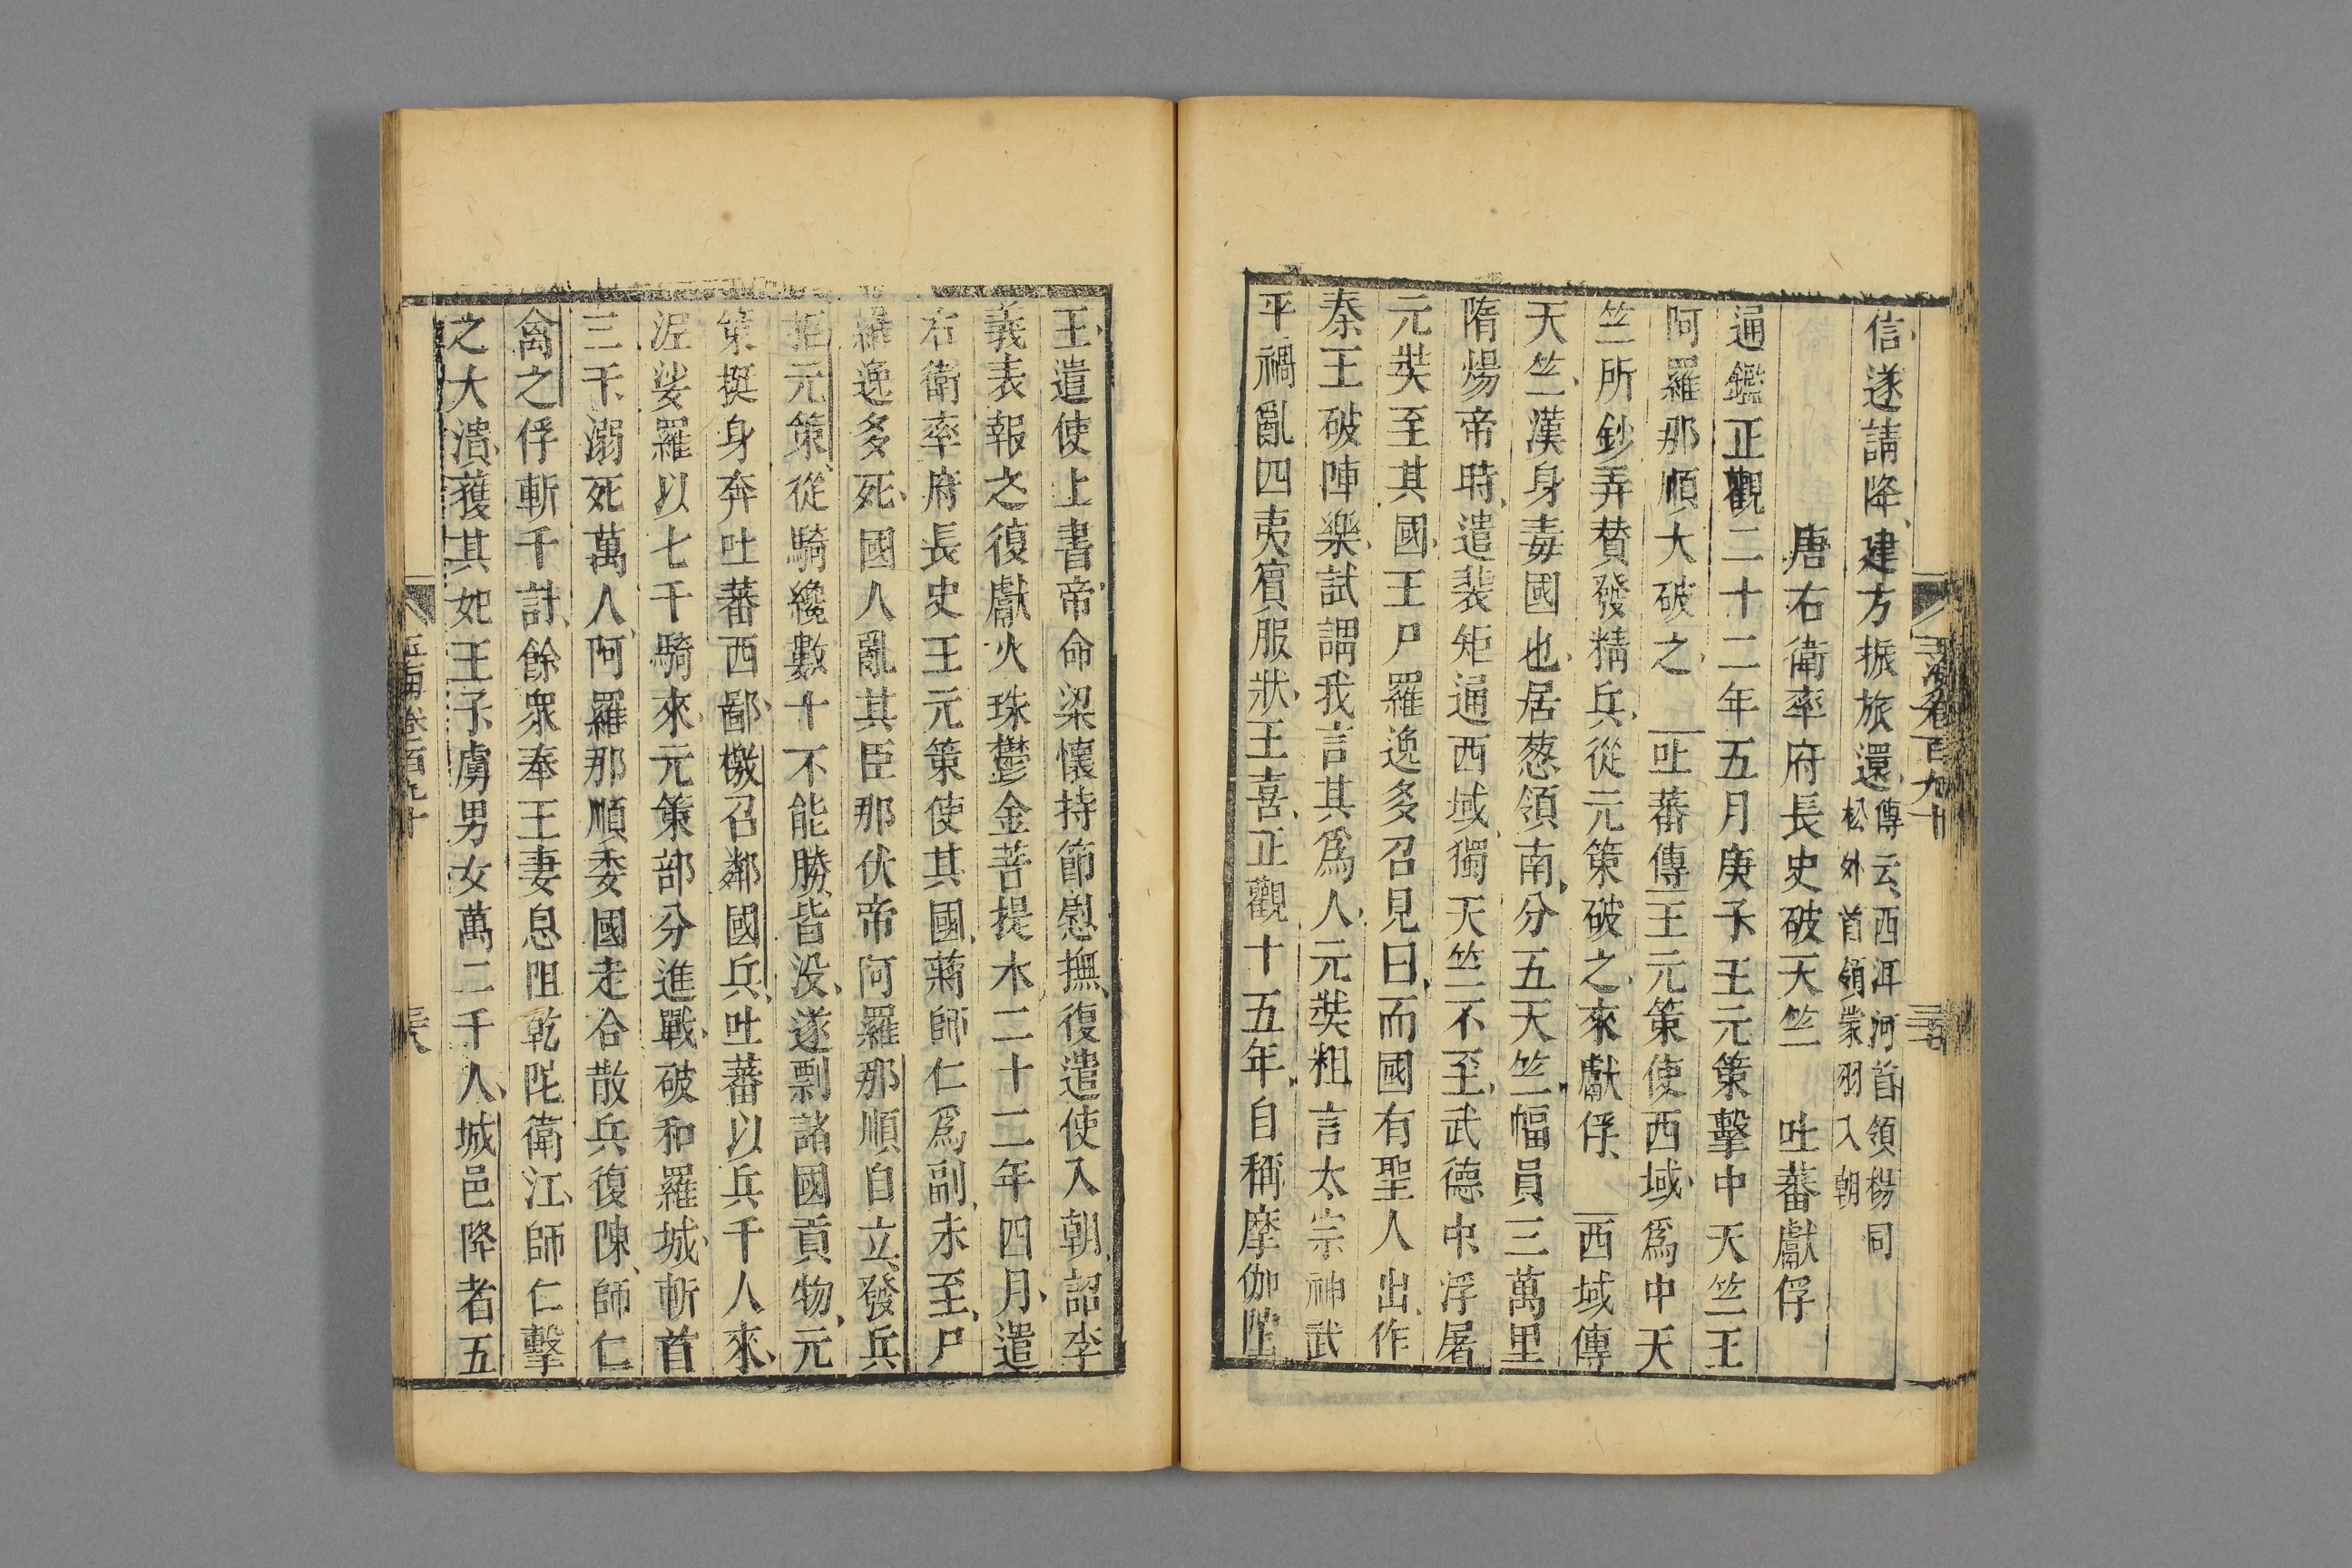 信遂請降建方振旅還傳云西洱河首領楊同
松外首領蒙羽入朝
唐右衛率府長史破天竺 吐蕃獻俘
通鑑正觀二十二年五月庚子王元策擊中天竺王
阿羅那順大破之 吐蕃傳王元策使西域爲中天
竺所鈔弄贊發精兵從元策破之來獻俘 西域傳
天竺漢身毒國也居葱領南分五天竺幅員三萬里
隋煬帝時遣裴矩通西域獨天竺不至武德中浮屠
元奘至其國王尸羅逸多召見曰而國有聖人出作
秦王破陣樂試謂我言其爲人元奘粗言太宗神武
平禍亂四夷賓服狀王喜正觀十五年自稱摩伽陁
王遣使上書帝命梁懷持節慰撫復遣使入朝詔李
義表報之復獻火珠鬱金菩提木二十二年四月遣
右衛率府長史王元策使其國蔣師仁爲副未至尸
羅逸多死國人亂其臣那伏帝阿羅那順自立發兵
拒元策從騎纔數十不能勝皆没遂剽諸國貢物元
策挺身奔吐蕃西鄙檄召鄰國兵吐蕃以兵千人來
泥娑羅以七千騎來元策部分進戰破和羅城斬首
三千溺死萬人阿羅那順委國走合散兵復陳師仁
禽之俘斬千計餘衆奉王妻息阻乾陀衛江師仁擊
之大潰獲其妃王子虜男女萬二千人城邑降者五
玉海卷百九十